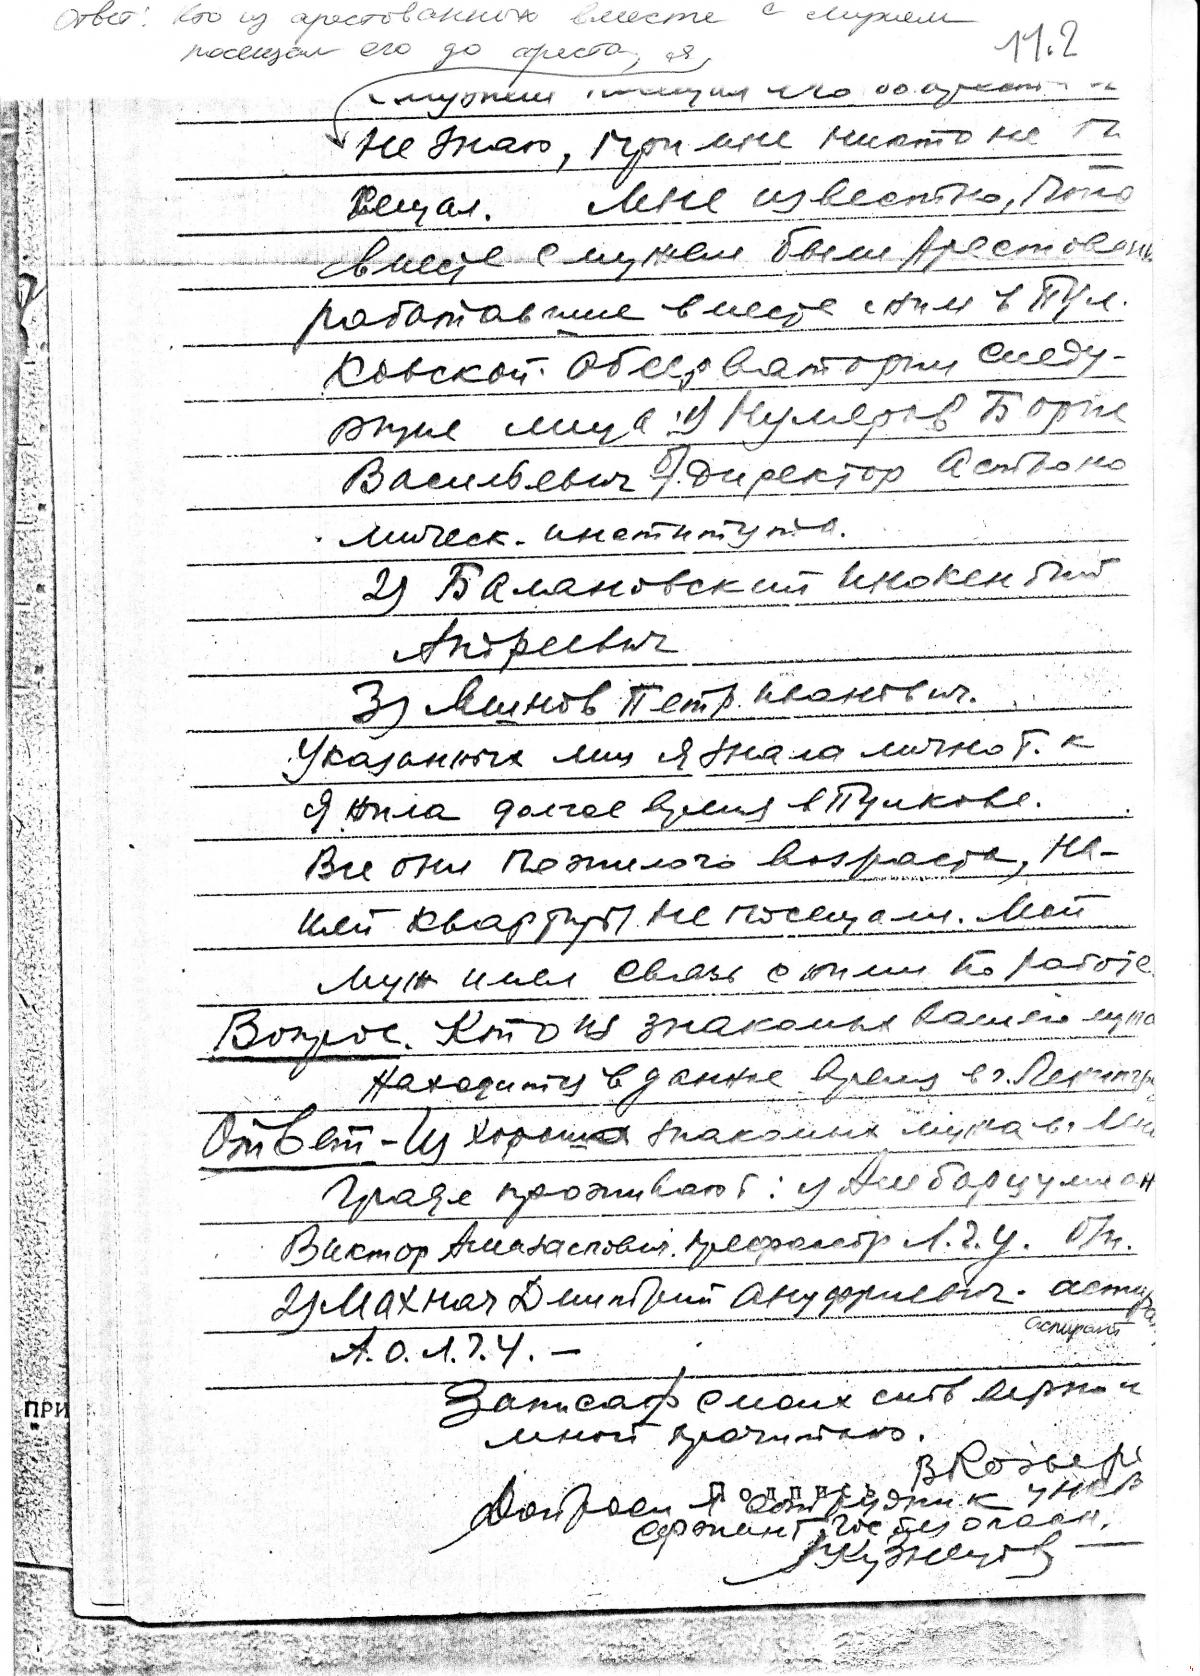 Ответ: Кто из арестованных вместе с мужем
посещал его до ареста, я,
11.2
мужем посещал его до ареста я
не знаю, при мне никто не по
сещал. Мне известно, что
вместе с мужем были арестованы
работавшие вместе с ним в Пул-
ковской Обсерватории следу-
ющие лица: 1) Нумеров Борис
Васильевич б/. Директор Астроно
мическ. института.
2) Балановский Инокентий
Андреевич
3) Яшнов Петр Иванович.
Указанных лиц я знала лично т. к
Я жила долгое время в Пулкове.
Все они пожилого возраста, на-
шей квартиры не посещали. Мой
муж имел связь с ними по работе.
Вопрос. Кто из знакомых вашего мужа
находится в данное время в г. Ленингр
Ответ - Из хороших знакомых мужа в г. Лен
граде проживают: 1) Амбарцумиан
Виктор Амазаспович. профессор Л.Г.У. б/п.
2) Махнач Дмитрий Ануфриевич. аспира
аспирант
А.О.Л.Г.У. —
Записано с моих слов верно и
мной прочитано.
В Козыре
Подпись
Допросил сотрудник УНКВ
сержант госбезопасн.
Кузнецов
ПРИ